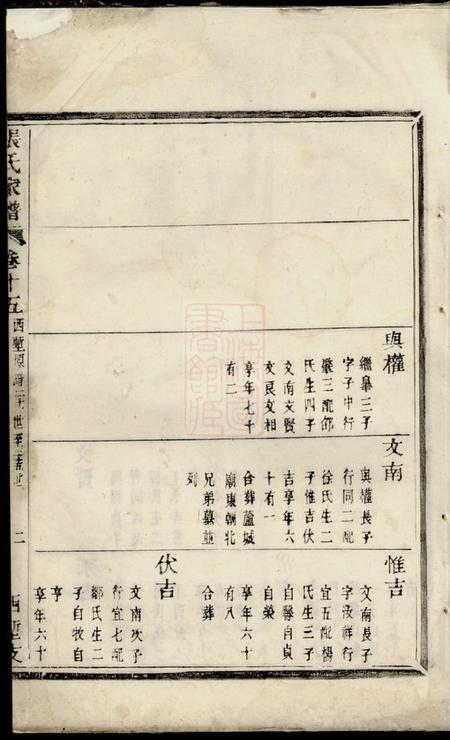 與權
繼皋三子
字子中行
發三配邵
氏生四子
文南文賢
文良文相
享年七十
有二
文南
與權長子
行同二配
徐氏生二
子惟吉伏
吉享年六
十有一
合葬蘆城
廟東朝北
兄弟墓並
列
惟吉
文南長子
字汝祥行
宜五配楊
氏生三子
自馨自貞
自榮
享年六十
有八
合葬
伏吉
文南次子
行宜七配
鄒氏生二
子自牧自
亨
享年六十
張氏家譜
卷十五
二
西塹支